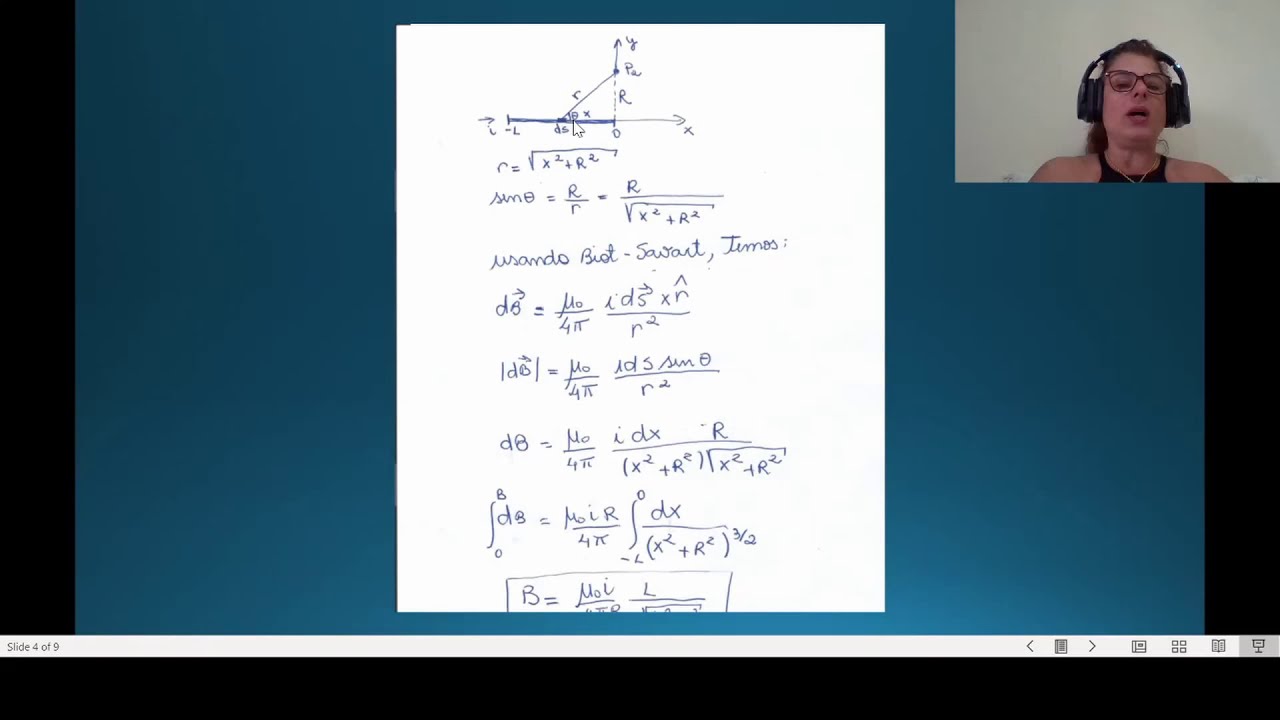 y
P₂
r
R
θ x
i -L ds 0 x
r = √(x² + R²)
sen θ = R/r = R/√(x² + R²)
usando Biot-Savart, Temos:
dB⃗ = μ₀/4π i ds⃗ x r̂/r²
|dB⃗| = μ₀/4π i ds sen θ/r²
dB = μ₀/4π i dx R/(x² + R²)√(x² + R²)
∫₀ᴮ dB = μ₀ i R/4π ∫₋L⁰ dx/(x² + R²)^3/2
B = μ₀ i/4πR L/
Slide 4 of 9